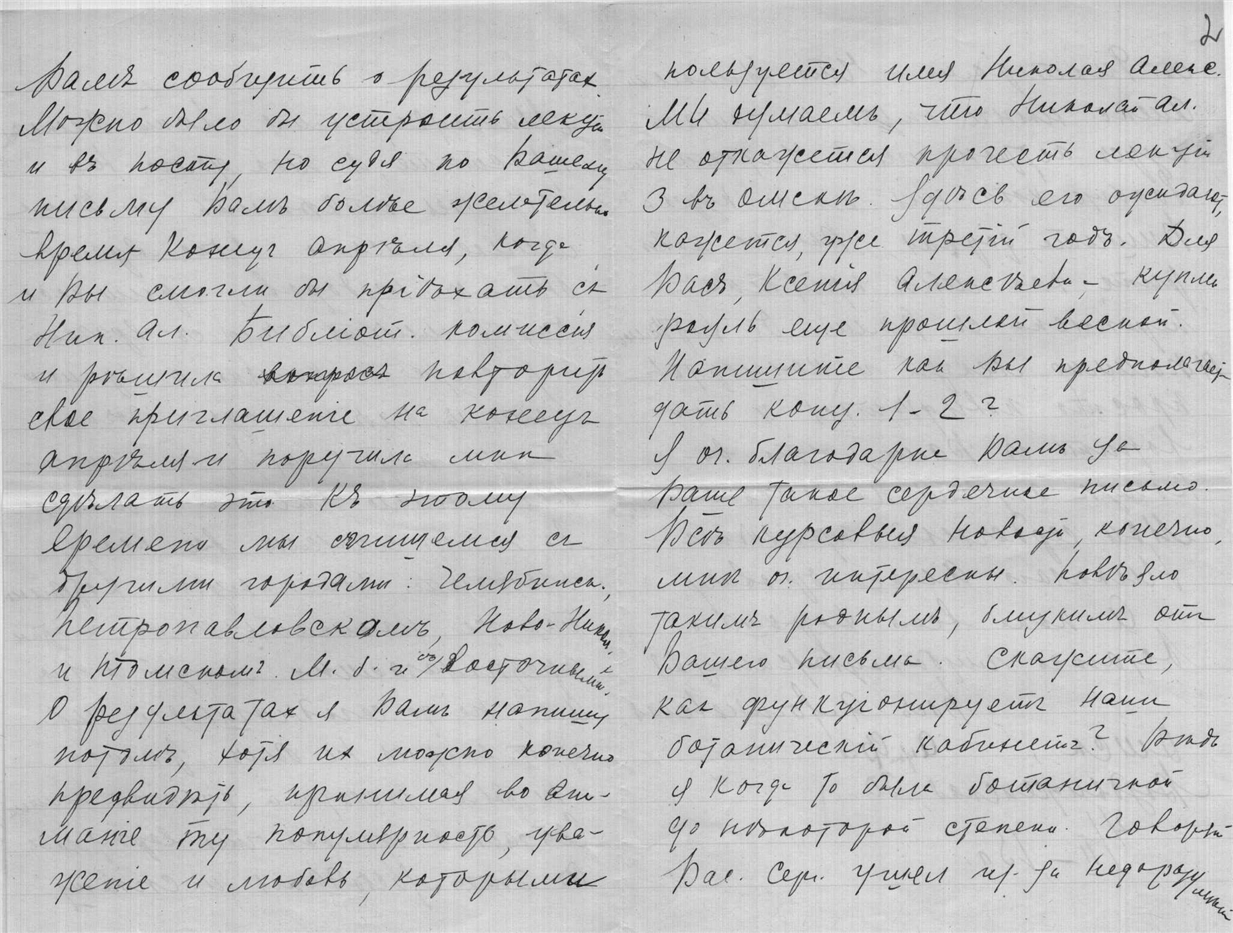 Вамъ сообщить о результатах
Можно было бы устроить лекции
и въ посту, но судя по Вашему
письму Вамъ болѣе желательно
время конецъ апрѣля, когда
и Вы смогли бы пріѣхать съ
Ник. Ал. Библіот. комиссія
и рѣшила вопросъ повторить
свое приглашеніе на конецъ
апрѣля и поручила мнѣ
сдѣлать это Къ этому
времени мы спишемся съ
другими городами: Челябинск.,
Петропавловскомъ, Ново-Никол.
и Томскомъ. М. б. и съ Восточными.
О результатах я Вамъ напишу
потомъ, хотя их можно конечно
предвидѣть, принимая во вни-
маніе ту популярность, ува-
женіе и любовь, которыми
2
пользуется имя Николая Алекс.
Мы думаемъ, что Николай Ал.
не откажется прочесть лекции
3 въ Омскѣ. Здѣсь его ожидают,
кажется, уже третій годъ. Для
Васъ, Ксенія Алексѣевна, купили
рояль еще прошлой весной.
Напишите как Вы предполагаете
дать конц. 1-2?
Я оч. благодарна Вамъ за
Ваше такое сердечное письмо.
Всѣ курсовыя новости, конечно,
мнѣ оч. интересны. Повѣяло
такимъ роднымъ, близкимъ отъ
Вашего письма. Скажите,
как функционируетъ наш
ботаническій кабинетъ? Вѣдь
я когда то была ботаничкой
до нѣкоторой степени. Говорят
Вас. Серг. ушел из-за недоразумѣній